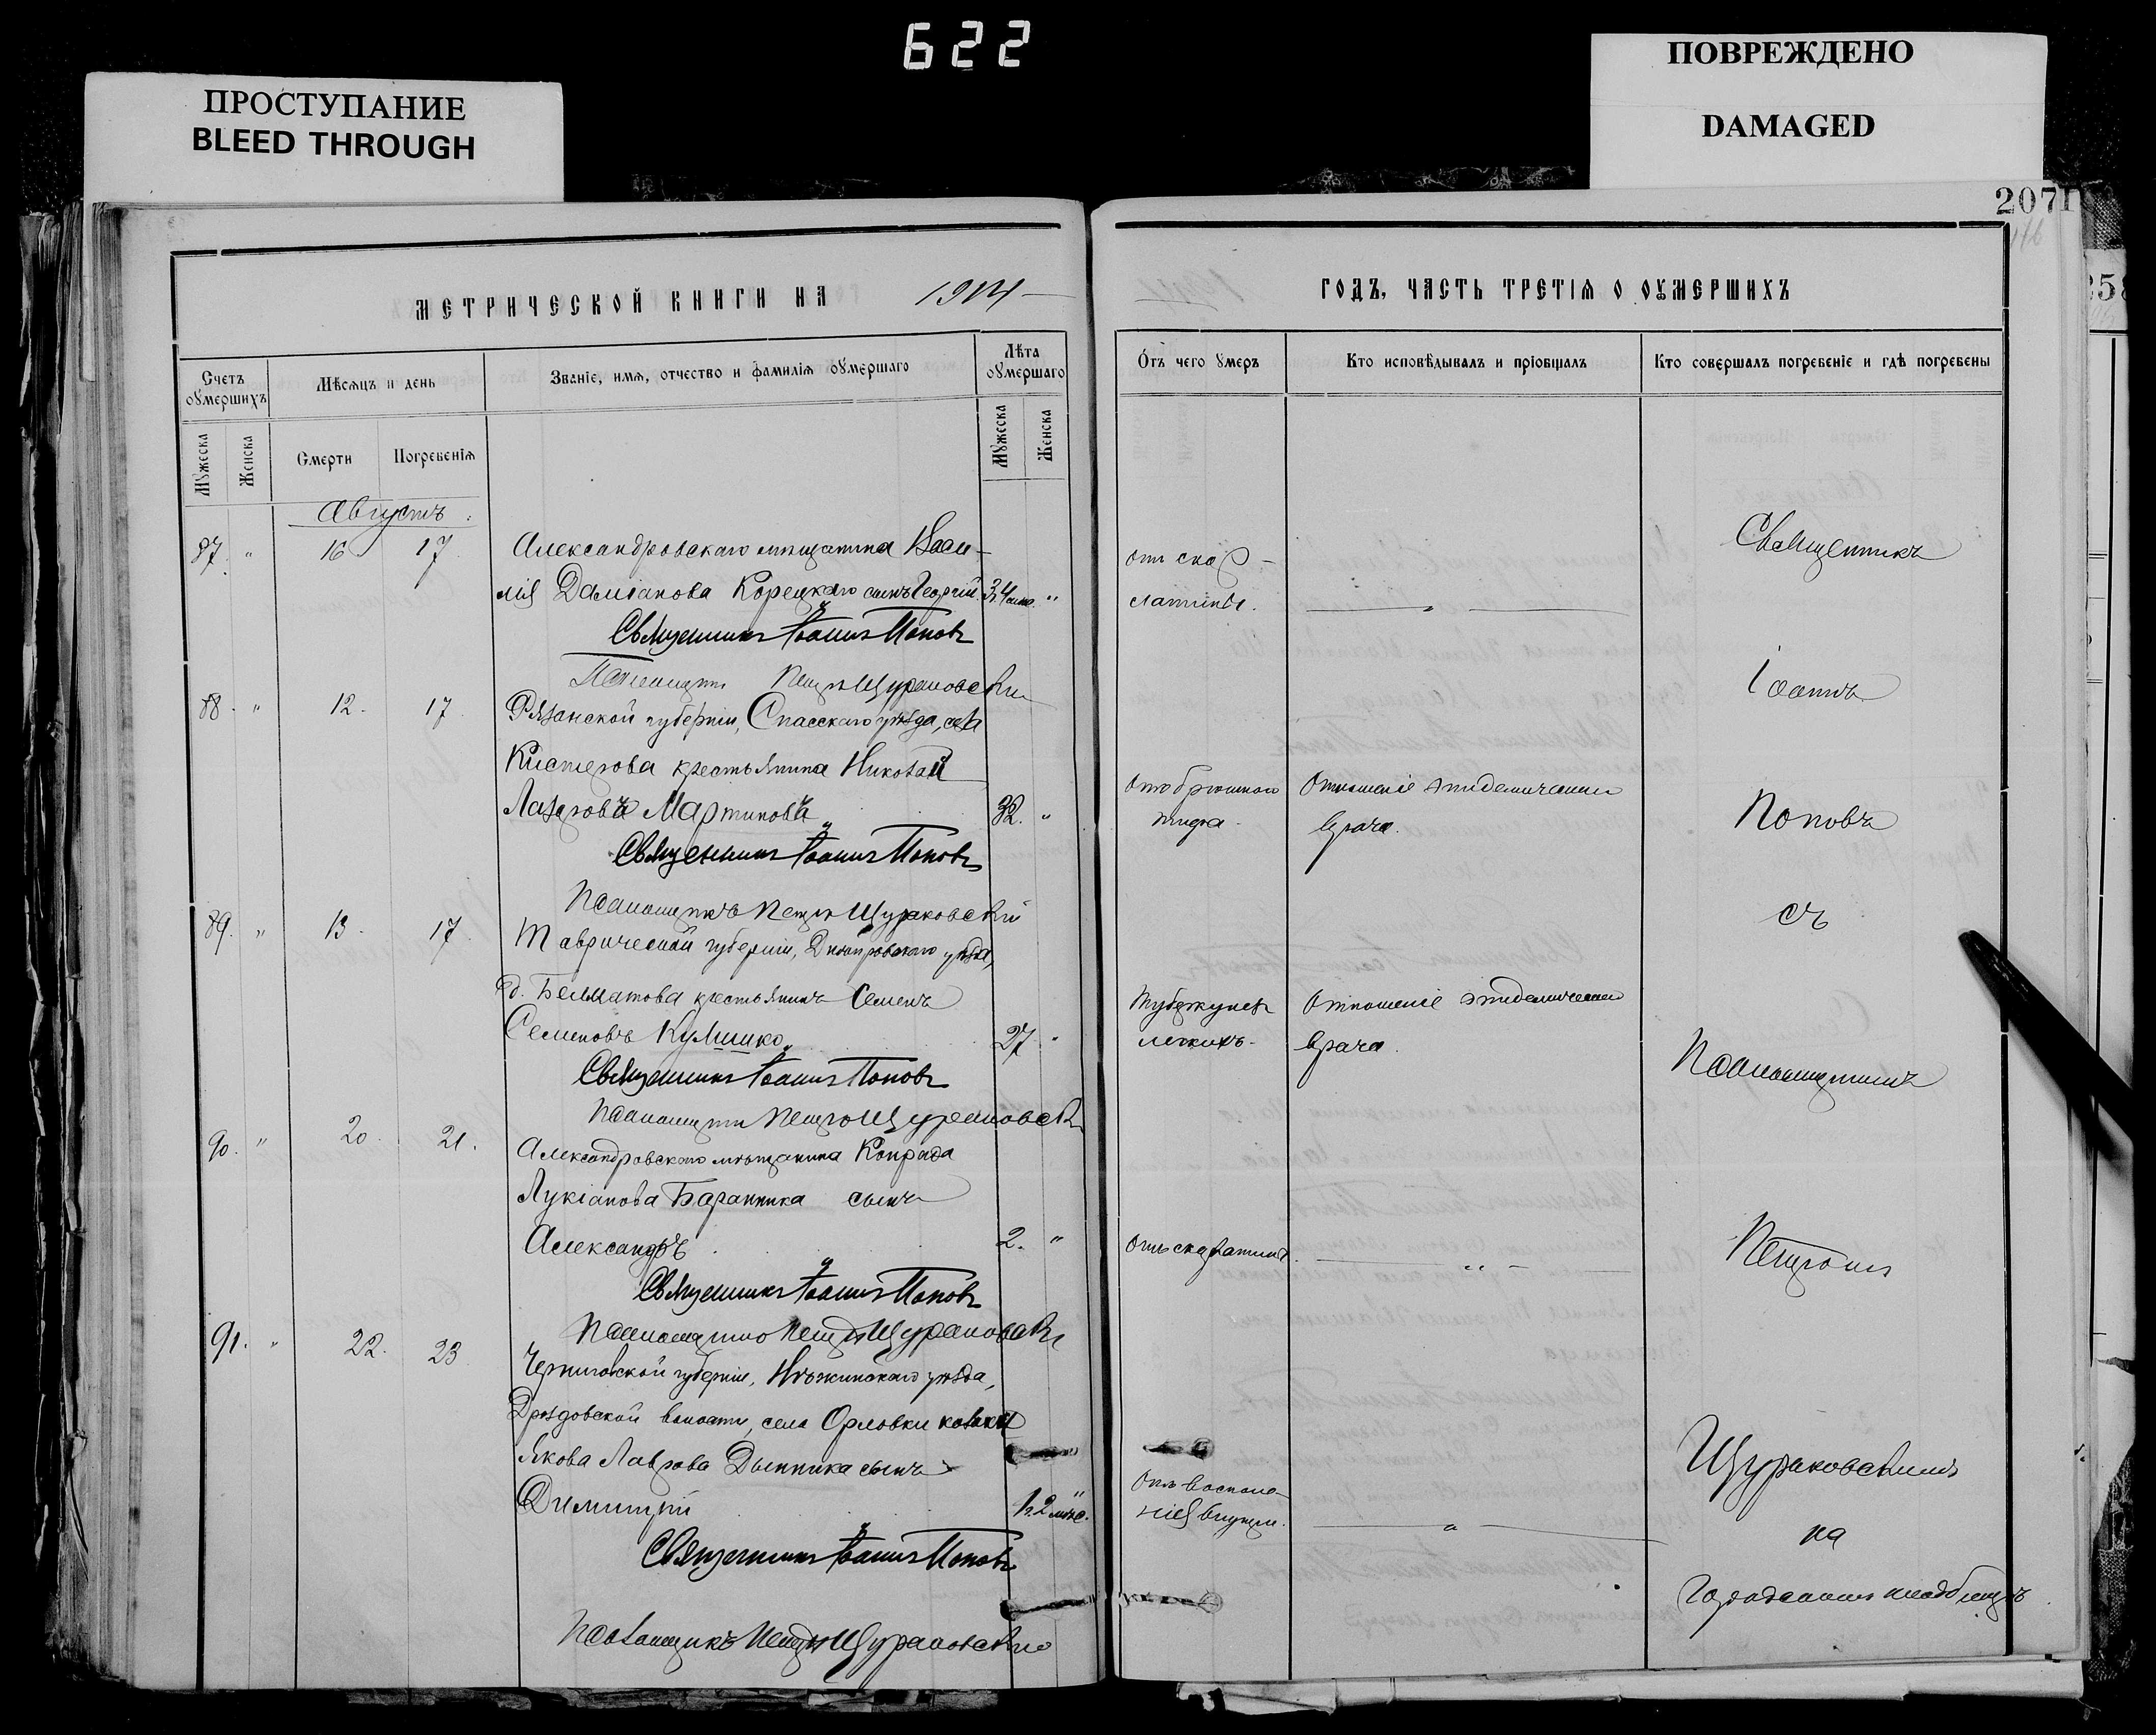 622
ПРОСТУПАНИЕ
BLEED THROUGH
ПОВРЕЖДЕНО
DAMAGED
2071
116
258
МЕТРИЧЕСКОЙ КНИГИ НА 1914
ГОДЪ, ЧАСТЬ ТРЕТІЯ О ОУМЕРШИХЪ
Счетъ оумершихъ
Мѣсяцъ и день
Званіе, имя, отчество и фамилія оумершаго
Лѣта оумершаго
Мужеска
Женска
Смерти
Погребенія
Мужеска
Женска
Отъ чего умеръ
Кто исповѣдывалъ и пріобщалъ
Кто совершалъ погребеніе и гдѣ погребены
Августъ
87. " 16 17 Александровскаго мѣщанина Васи-
лія Даміанова Корецкаго сынъ Георгій "
Священникъ Іоаннъ Поповъ
Псаломщикъ Петръ Щураковскій
отъ скар-
латины.
88. " 12. 17 Рязанской губерніи, Спасскаго уѣзда, села
крестьянина Николай
Лазаровъ Мартиновъ 32. "
Священникъ Іоаннъ Поповъ
Псаломщикъ Петръ Щураковскій
Отъ брюшного
тифа.
Отношеніе эпидемическаго
врача.
89. " 13. 17. Таврической губерніи, Днѣпровскаго уѣзда,
д. крестьянинъ Семенъ
Семеновъ 27. "
Священникъ Іоаннъ Поповъ
Псаломщикъ Петръ Щураковскій
Туберкулез
легкихъ.
Отношеніе эпидемическаго
врача.
90. " 20. 21. Александровскаго мѣщанина Конрада
Лукіанова Баранника сынъ
Александръ 2. "
Священникъ Іоаннъ Поповъ
Псаломщикъ Петръ Щураковскій
Отъ скарлатины.
91. " 22. 23 Черниговской губерніи, Нѣжинскаго уѣзда,
Дроздовской волости, села Орловки козака
Якова Лаврова Дынника сынъ
Димитрій "
Священникъ Іоаннъ Поповъ
Псаломщикъ Петръ Щураковскій
Отъ воспале-
нія
Священникъ
Іоаннъ
Поповъ
съ
Псаломщикомъ
Петромъ
Щураковскимъ
на
Городскомъ кладбищѣ.